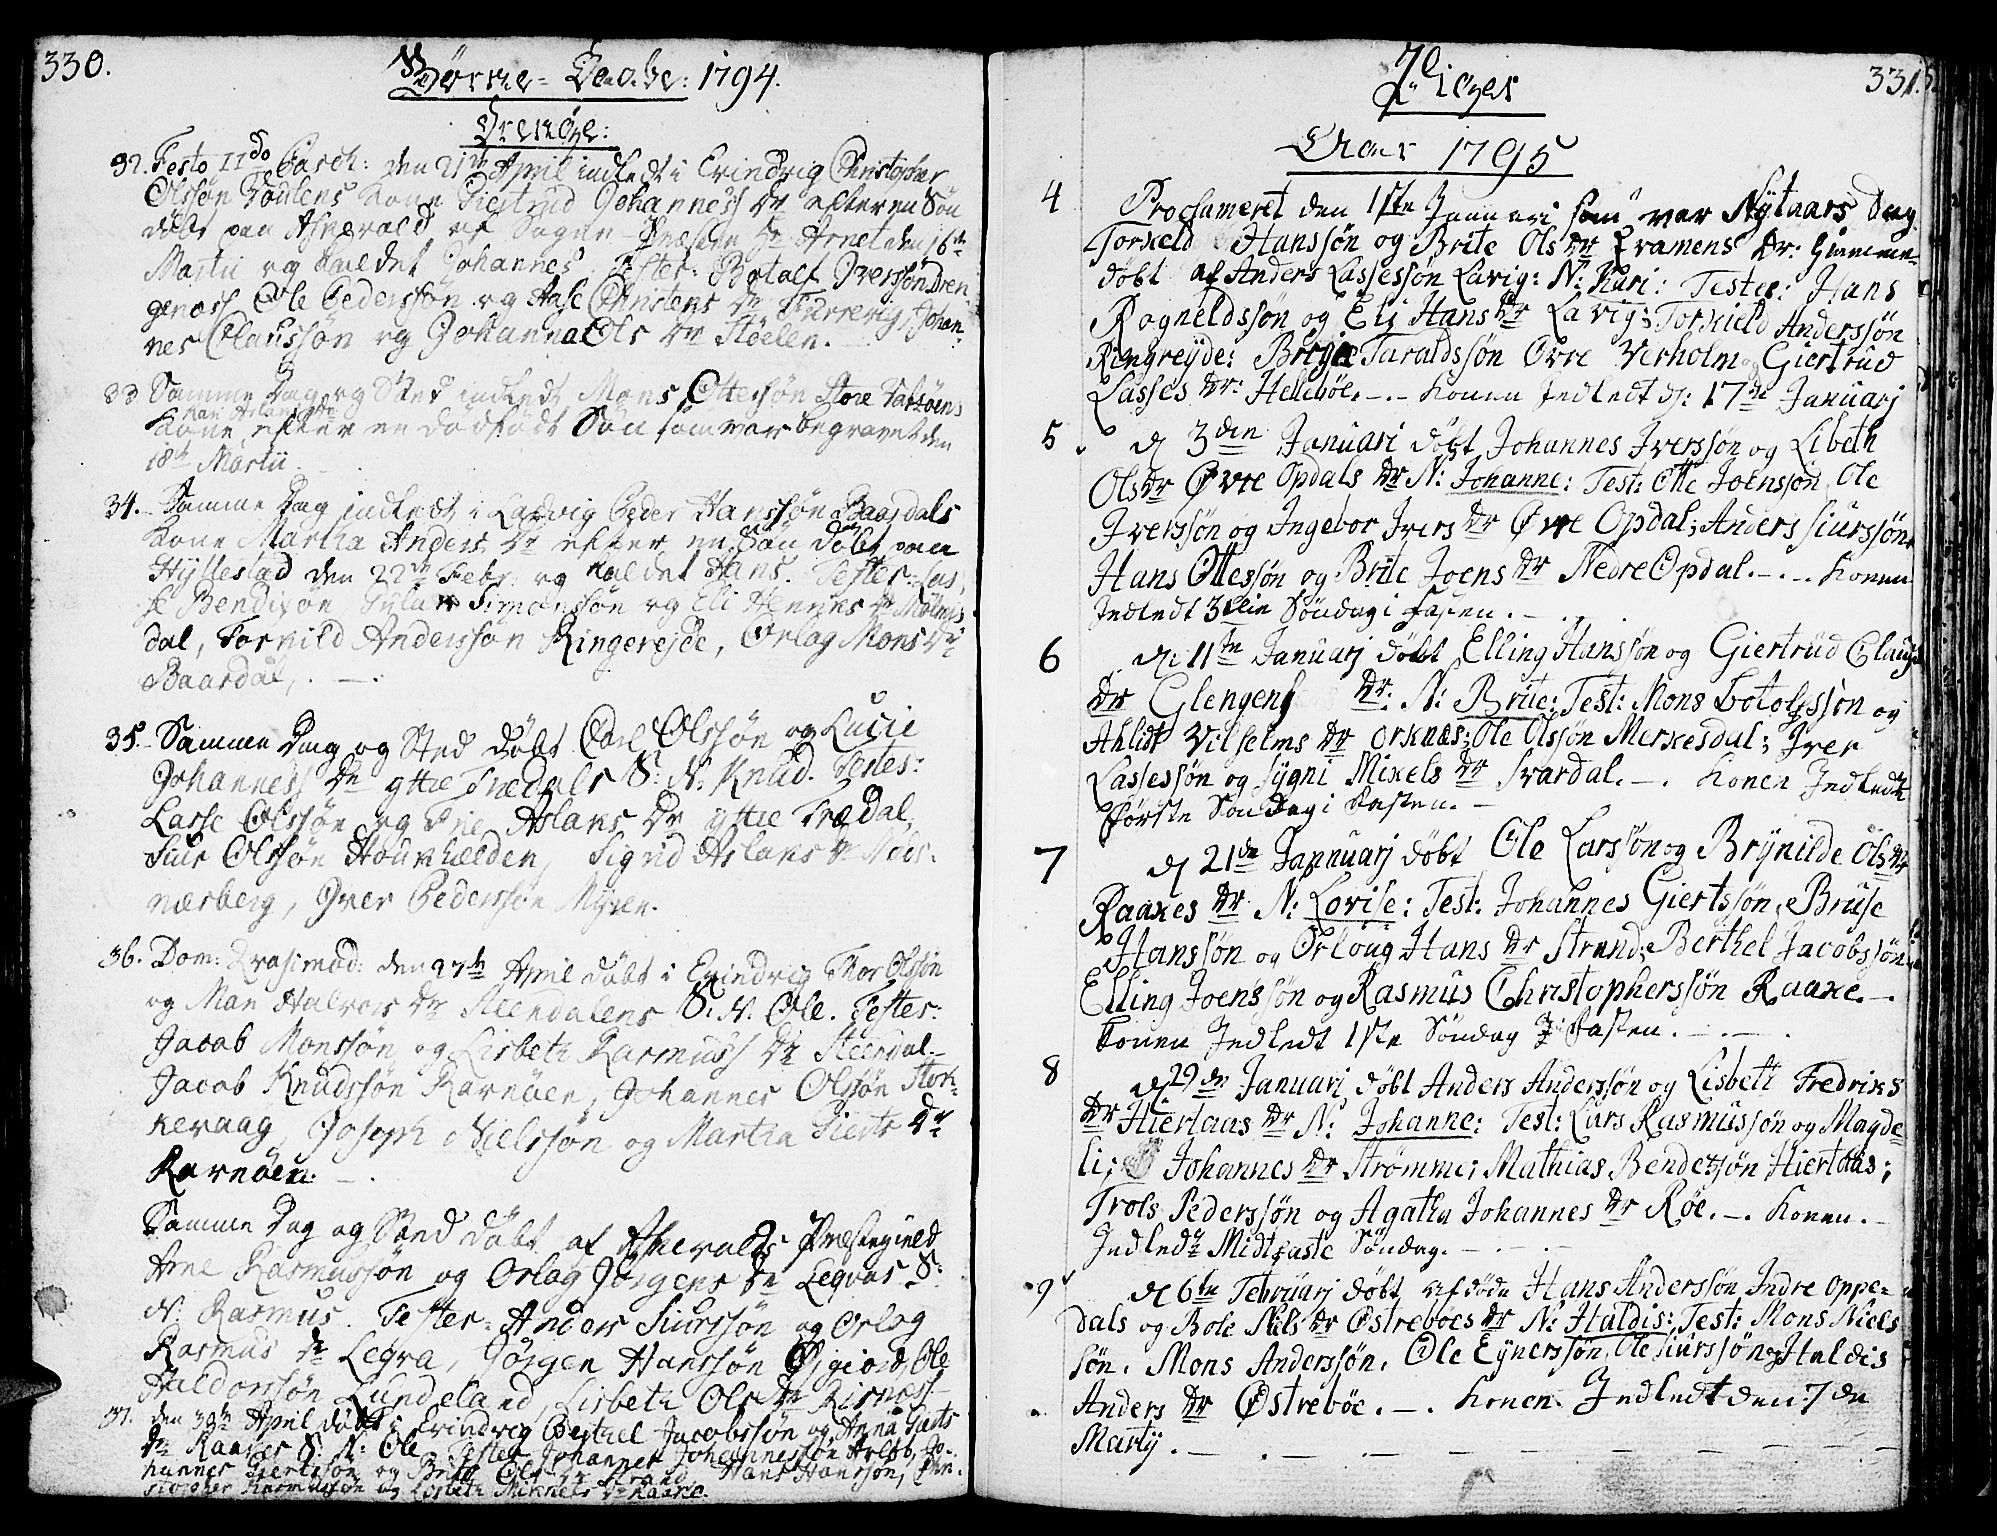 330.
Børne-Daabe: 1794.
Drenge:
32. Festo IIdo Pasch: den 21de April indledt i Evindvig Christopher
Olssøn Kone Giertrud Johannes Dr efter en Søn
døbt paa Askevold af Sogne Præsten Hr Arnet den 16de
Martii og kaldet Johannes. Tester: Botolf Iverssøn Dren-
genæss Ole Pederssøn og Aase Christens Dr Furrevig, Johan-
nes Claussøn og Johanna Ols Dr Støelen.
33 Samme Dag og Sted indledt Mons Ottesøn Store
Kone efter en dødfødt Søn som var begravet den
18de Martii
34. Samme Dag indledt i Ladvig Peder Hanssøn Baardals
Kone Martha Anders Dr efter en Søn døbt paa
Hyllestad den 22de Febr: og kaldet Hans. Tester: Las-
se Bendixøn, Simonssøn og Eli Hennes Dr
dal, Torkild Anderssøn Ringereide, Orlog Mons Dr
Baardal,
35. Samme Dag og Sted døbt Carl Olssøn og Lucie
Johannes Dr yttre Trædals S: N: Knud. Testes:
Lasse Olssøn og Aslaks Dr yttre Trædal,
Siur Olssøn Sigrid Aslaks Dr Nees-
næsberg, Iver Pederssøn Myren.
36. Dom: Qvasimod: den 27de April døbt i Evindvig Thor Olsøn
og Mari Halvors Dr Steendalens S: N: Ole. Tester:
Jacob Monssøn og Lisbeth Rasmuss Dr Steendal.
Jacob Knudssøn Ravnøen, Johannes Olssøn
kevaag, Joseph Nielssøn og Martha Gierts Dr
Ravnøen.
Samme Dag og Sted døbt af Askevolds Præstegield
Arne Rasmussøn og Orlog Jørgens Dr Leqvas S:
N: Rasmus. Tester: Anders Siurssøn og Orlog
Rasmus Dr Leqva, Jørgen Hanssøn Ole
Haldorssøn Lundeland, Lisbeth Ols Dr Risnæss
37. den 30de April døbt i Evindvig Berthel Jacobssøn og Anna Gierts
Dr Raakes S: N: Ole. Tester Johannes Johannessøn Jo-
hannes Giertssøn og Brite Ols Dr Strand, Hans Hanssøn, Chri-
stopher Rasmussøn og Lisbeth Mikkels Dr Raake.
Piger 331.
Anno 1795
4 Proclameret den 1ste Januari som var Nytaars Dag
Torkeld Hanssøn og Brite Ols Dr Qvamens Dr: hiemme-
døbt af Anders Lassessøn Lavig: N: Kari: Testes: Hans
Rogneldssøn og Eli Hans Dr Lavig; Torkield Anderssøn
Ringreyde: Taraldssøn Ovre Verholm og Giertrud
Lasses Dr: Hellebøe. - . - Konen Indledt d: 17de Januarj
5 d 3den Januari døbt Johannes Iverssøn og Libeth
Ols Dr Øvre Opdals Dr N: Johanne: Test: Otte Joenssøn, Ole
Iverssøn og Ingebor Ivers Dr Øvre Opdal; Anders Siurssøn
Hans Ottessøn og Brite Joens Dr Nedre Opdal. - . - Konen
Indledt 3die Søndag i Fasten. -
6 d: 11te Januarj døbt Elling Hanssøn og Giertrud Claus
Dr Glengens Dr: N: Brite: Test: Mons Botolfssøn og
Ahlidt Vilhelms Dr Orknæs; Ole Olssøn Merkesdal; Iver
Lassessøn og Sygni Mikels Dr Svardal. - . Konen Indledt
Første Søndag i Fasten. -
7 d 21de Januarj døbt Ole Larssøn og Brynilde Ols Dr
Raakes Dr N: Lovise: Test: Johannes Giertssøn, Bruse
Hanssøn og Orloug Hans Dr Strand; Berthel Jacobssøn,
Elling Joenssøn og Rasmus Christopherssøn Raake. -
Konen Indledt 1ste Søndag i Fasten. - . - .
8 d 29de Januari døbt Anders Anderssøn og Lisbeth Fredriks
Dr Hiertaas Dr N: Johanne: Test: Lars Rasmussøn og Magde-
li; Johannes Dr Strømme; Mathias Bendetsøn Hiertaas;
Trols Pederssøn og Agatha Johannes Dr Røe. - . Konen. -
Indledt Midfaste Søndag. -
9 d 6te Februarj døbt af døde Hans Anderssøn Indre Oppe-
dals og Bole Nils Dr Østrebøes Dr N: Haldis: Test: Mons Niels
søn. Mons Anderssøn. Ole Eynerssøn, Ole Siurssøn og Haldis
Anders Dr Østrebøe. - . Konen Indledt den 7de
Martij. -